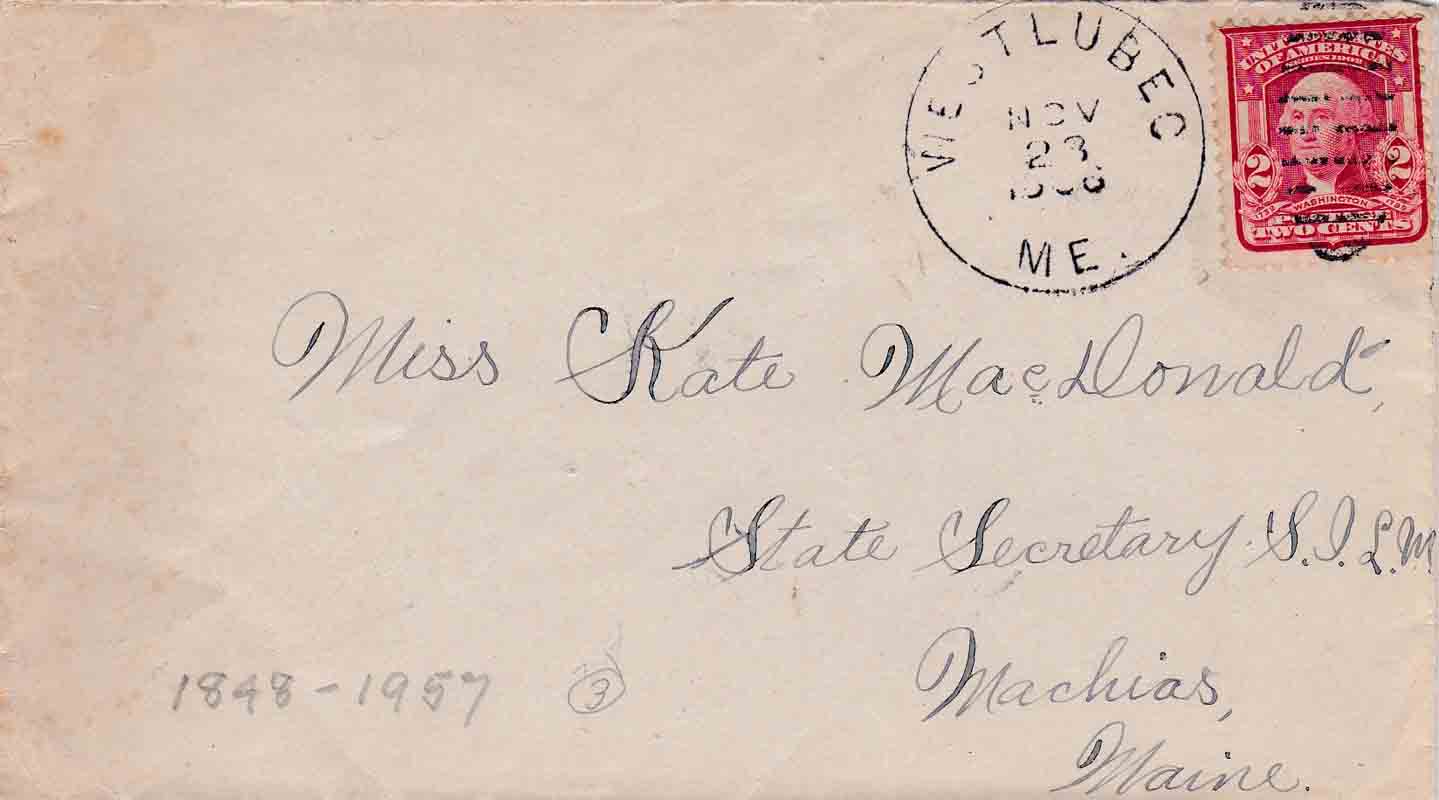 WEST LUBEC
NOV
23
ME.
UNITED STATES
OF AMERICA
SERIES 1902
2 2
1732 WASHINGTON 1799
POSTAGE
TWO CENTS
Miss Kate MacDonald,
State Secretary S.I.L.M
Machias,
Maine.
1848-1957 3